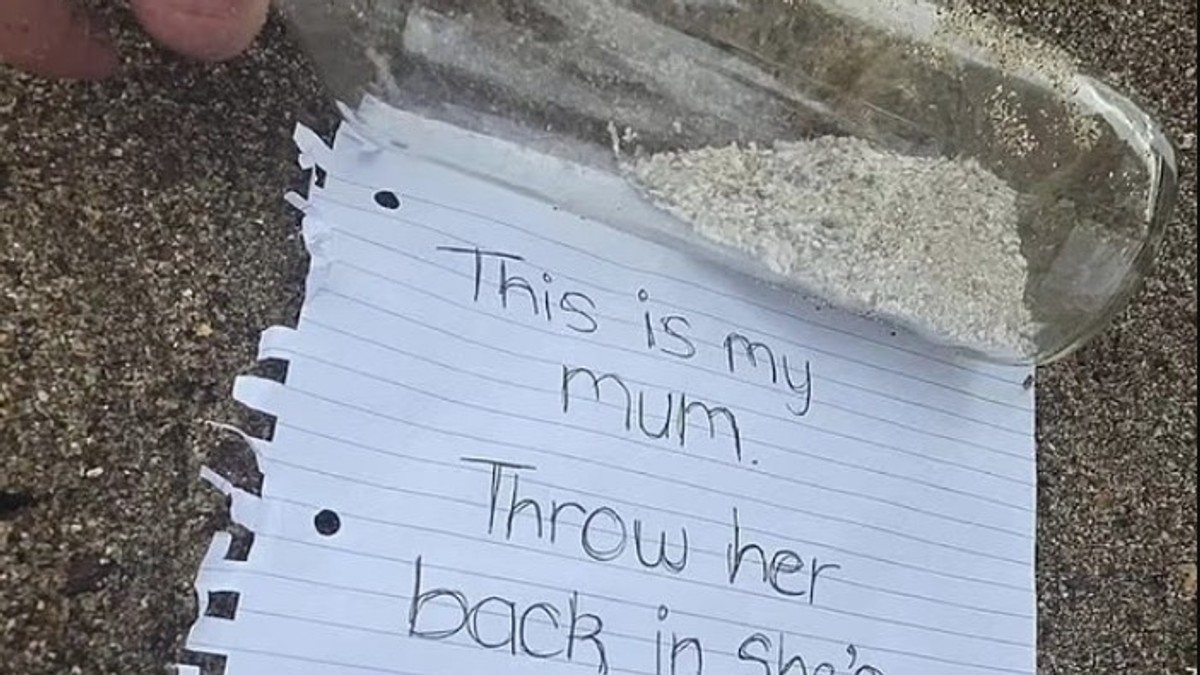 This is my
mum.
Throw her
back in she's